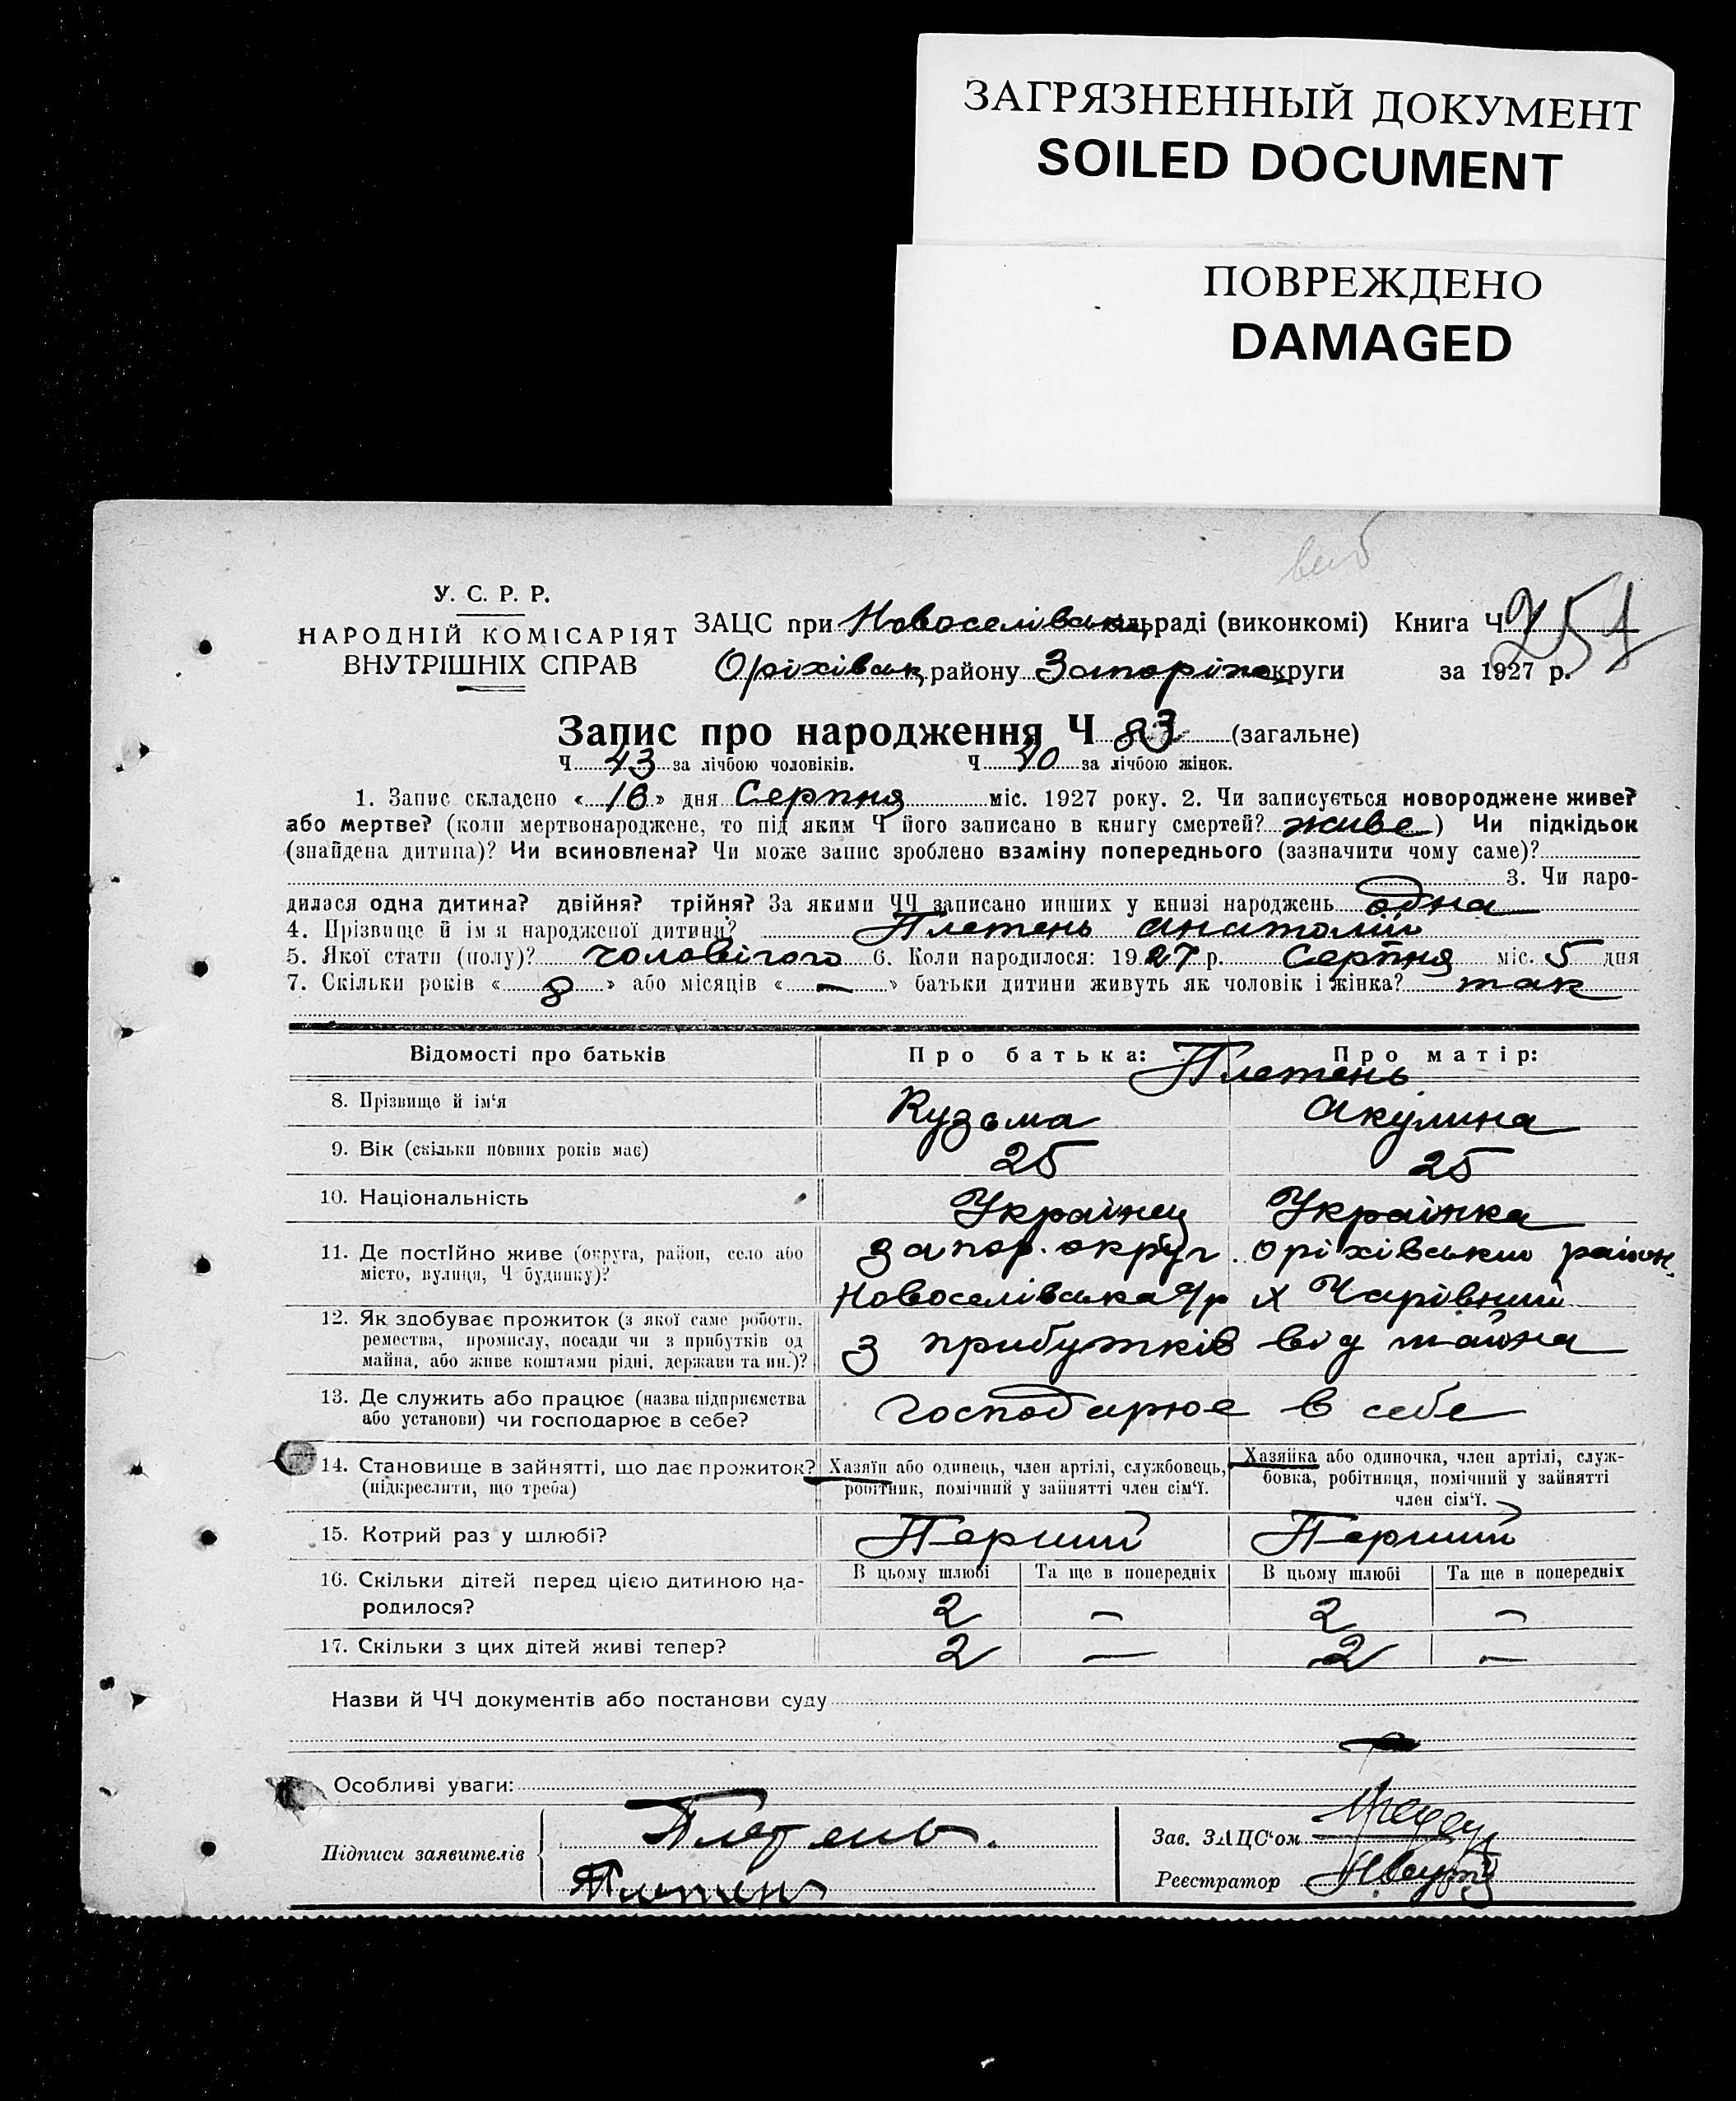 ЗАГРЯЗНЕННЫЙ ДОКУМЕНТ
SOILED DOCUMENT
ПОВРЕЖДЕНО
DAMAGED
У. С. Р. Р.
НАРОДНІЙ КОМІСАРІЯТ
ВНУТРІШНІХ СПРАВ
251
ЗАЦС при Новоселівськ раді (виконкомі) Книга Ч
Оріхівськ району Запоріж округи за 1927 р.
Запис про народження Ч 83 (загальне)
Ч 43 за лічбою чоловіків. Ч 40 за лічбою жінок.
1. Запис складено « 16 » дня Серпня міс. 1927 року. 2. Чи записується новороджене живе?
або мертве? (коли мертвонароджене, то під яким Ч його записано в книгу смертей? живе ) Чи підкідьок
(знайдена дитина)? Чи всиновлена? Чи може запис зроблено взаміну попереднього (зазначити чому саме)?
3. Чи наро-
дилася одна дитина? двійня? трійня? За якими ЧЧ записано инших у книзі народжень одна
4. Прізвище й ім я народженої дитини? Плетень Анатолій
5. Якої стати (полу)? чоловічого 6. Коли народилося: 1927 р. Серпня міс. 5 дня
7. Скільки років « 8 » або місяців « — » батьки дитини живуть як чоловік і жінка? так
Відомості про батьків Про батька: Про матір:
Плетень
8. Прізвище й ім'я Кузьма Акулина
9. Вік (скільки повних років має) 25 25
10. Національність Українец Українка
11. Де постійно живе (округа, район, село або Запор. округ. Оріхівський район.
місто, вулиця, Ч будинку)? Новоселівська с/р х Чарівний
12. Як здобуває прожиток (з якої саме роботи,
ремества, промислу, посади чи з прибутків од з прибутків від майна
майна, або живе коштами рідні, держави та ин.)?
13. Де служить або працює (назва підприємства господарює в себе
або установи) чи господарює в себе?
14. Становище в зайнятті, що дає прожиток? Хазяїн або одинець, член артілі, службовець, Хазяйка або одиночка, член артілі, служ-
(підкреслити, що треба) робітник, помічний у зайнятті член сім'ї. бовка, робітниця, помічний у зайнятті
член сім'ї.
15. Котрий раз у шлюбі? Перший Перший
16. Скільки дітей перед цією дитиною на- В цьому шлюбі Та ще в попередніх В цьому шлюбі Та ще в попередніх
родилося? 2 — 2 —
17. Скільки з цих дітей живі тепер? 2 — 2 —
Назви й ЧЧ документів або постанови суду
Особливі уваги:
Підписи заявителів Плетень.
Плетень
Зав. ЗАЦС'ом
Реєстратор